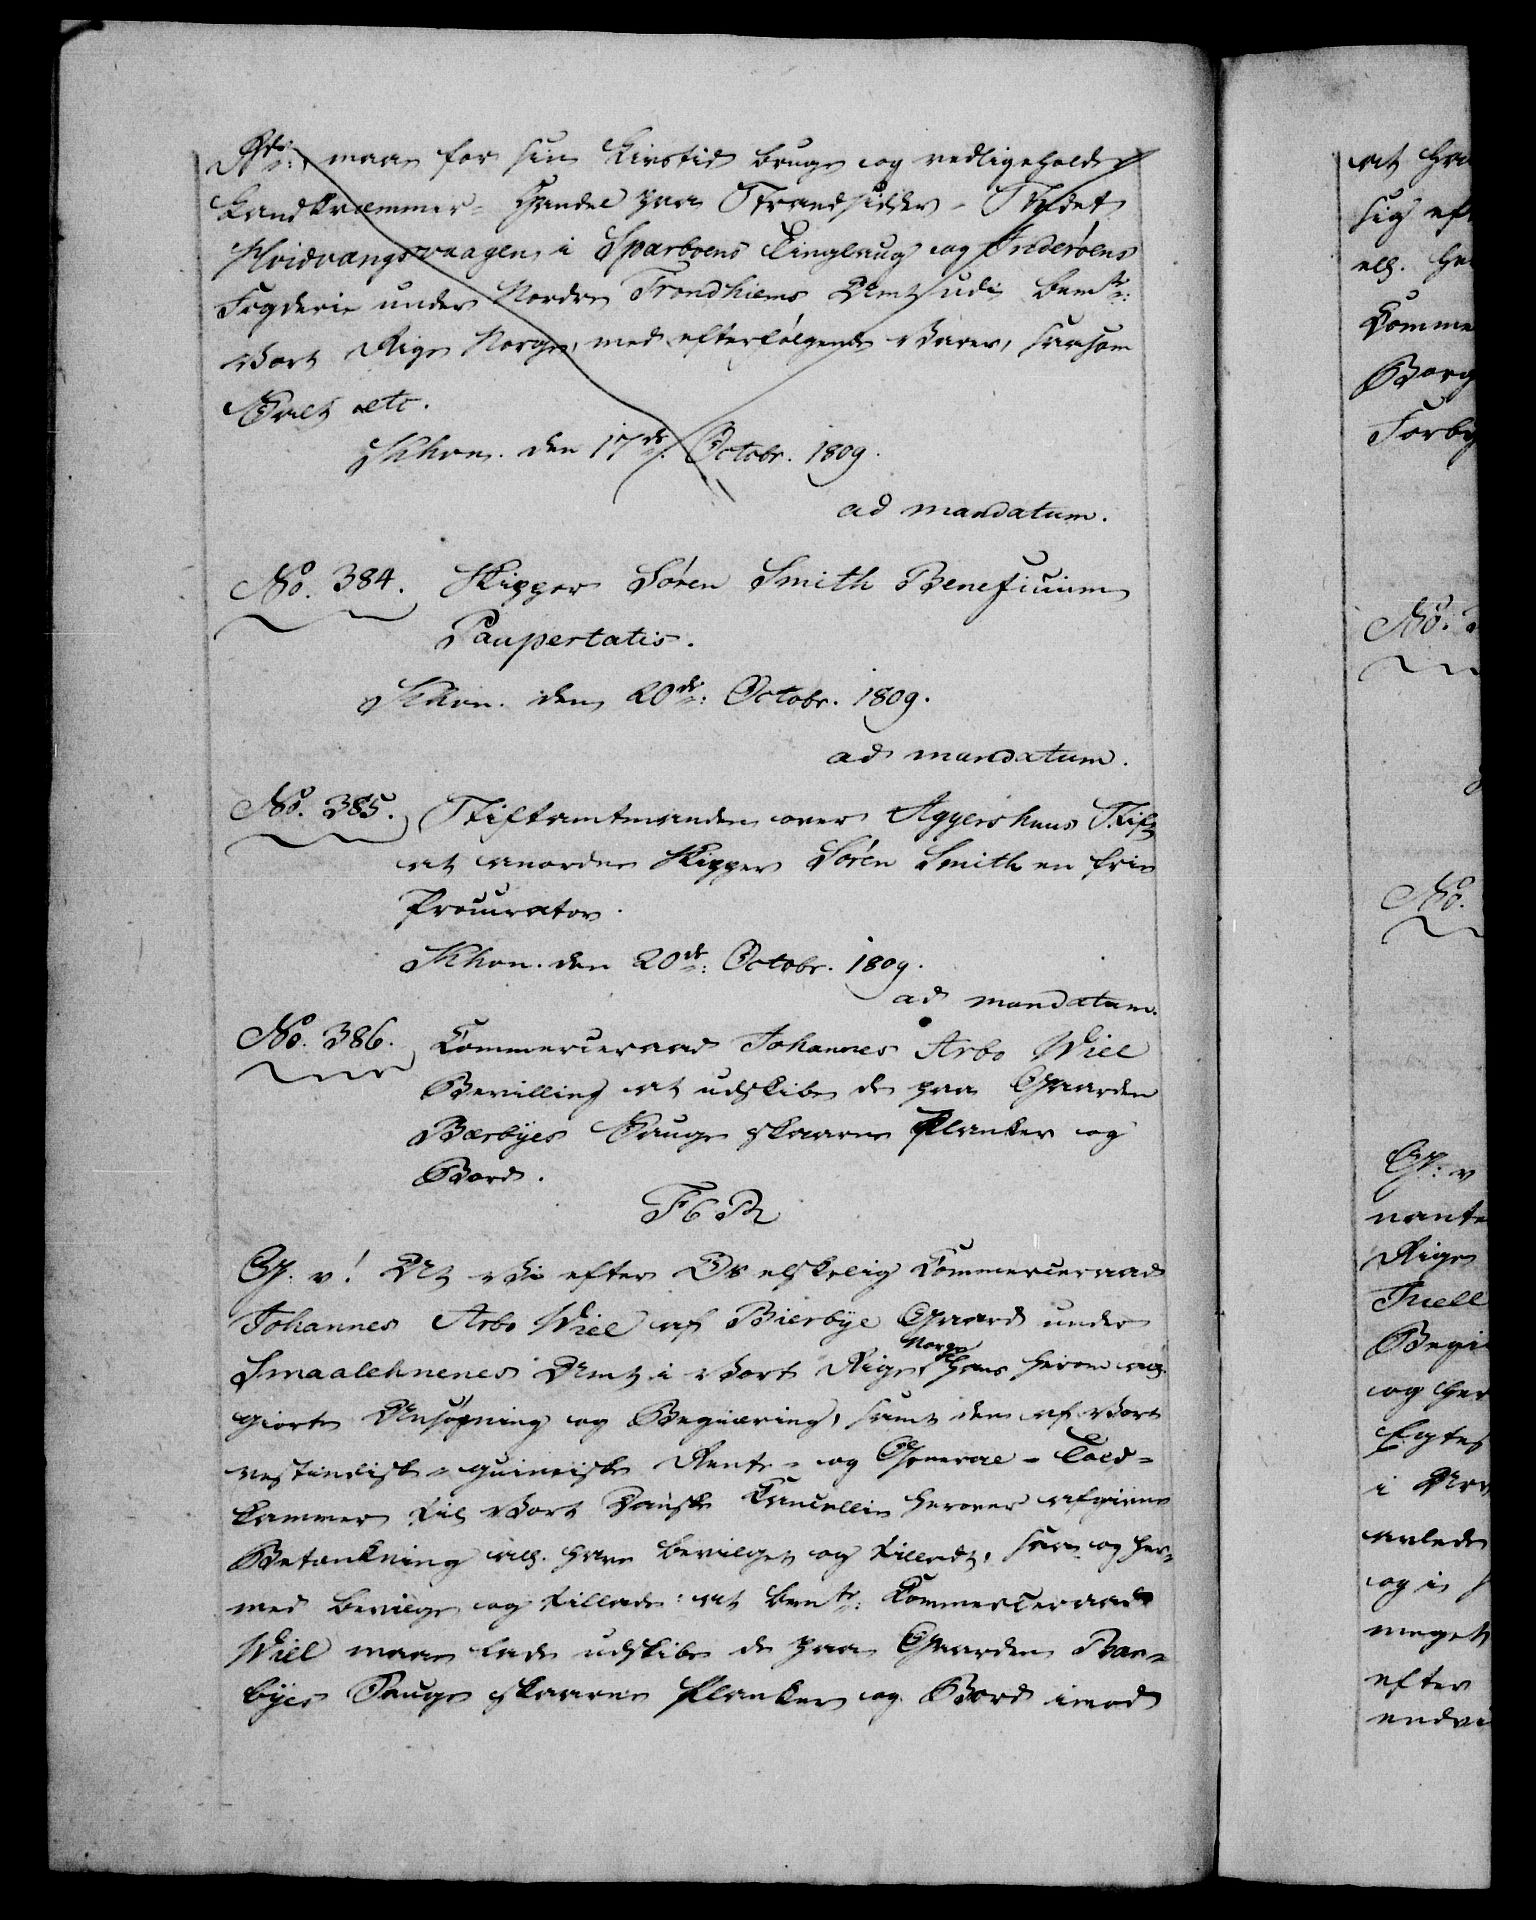 maae for sin Livstid bruge og vedligeholde
Landkræmmer-Handel paa Strandsidder-Stædet
Hvidvangsvaagen i Sparboens Tinglaug og Inderøens
Fogderie under Nordre Trondhiems Amt udi bemte:
Vort Rige Norge, med efterfølgende Varer, saasom
Salt etc.
Khvn. den 17de: Octobr. 1809.
ad mandatum.
No. 384. Skipper Sören Smith Beneficium
Paupertatis.
Khvn. den 20de: Octobr. 1809.
ad mandatum.
No. 385. Stiftamtmanden over Aggershuus Stift
at anordne Skipper Sören Smith en frie
Procurator.
Khvn. den 20de: Octobr. 1809.
ad mandatum.
No. 386. Commerceraad Johannes Arbo Wiel
Bevilling at udskibe de paa Gaarden
Bærbyes Sauge skaarne Planker og
Bord.
F6R
G. v! At Vi efter Os elskelig Commerceraad
Johannes Arbo Wiel af Bierbye Gaard under
Smaalehnenes Amt i Vort Rige Norge hans herom all.
giorte Ansøgning og Begiæring, samt den af Vort
vestindisk-guineiske Rente- og General-Told-
kammer til Vort Danske Cancellie herover afgivne
Betænkning all. have bevilget og tilladt, saa og her-
med bevilge og tillade: at bemte: Commerceraad
Wiel maae lade udskibe de paa Gaarden Bær-
byes Sauge skaarne Planker og Bord imod